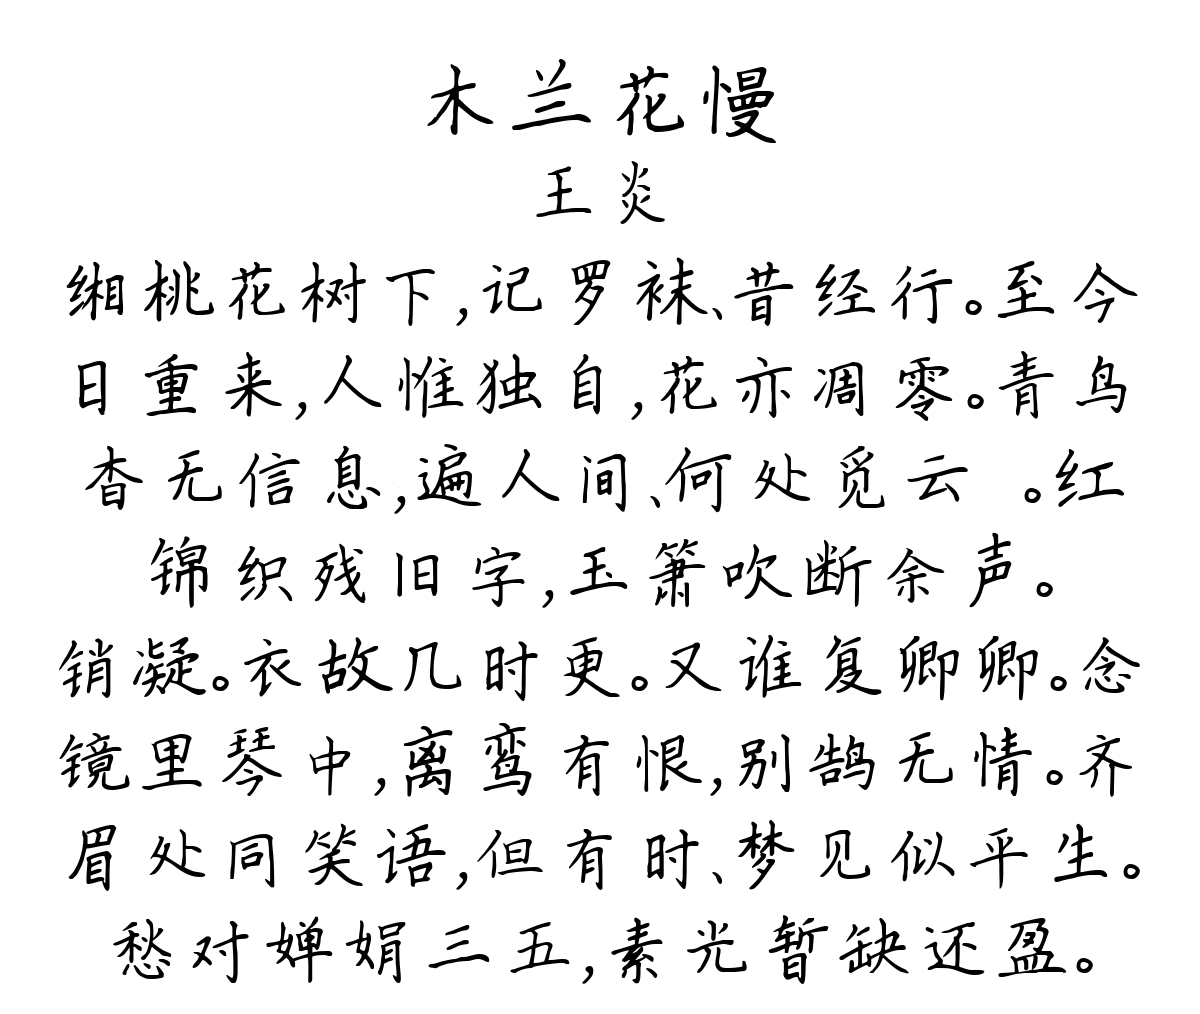 木兰花慢
王炎
缃桃花树下,记罗袜、昔经行。至今
日重来,人惟独自,花亦凋零。青鸟
杳无信息,遍人间、何处觅云 。红
锦织残旧字,玉箫吹断余声。
销凝。衣故几时更。又谁复卿卿。念
镜里琴中,离鸾有恨,别鹄无情。齐
眉处同笑语,但有时、梦见似平生。
愁对婵娟三五,素光暂缺还盈。